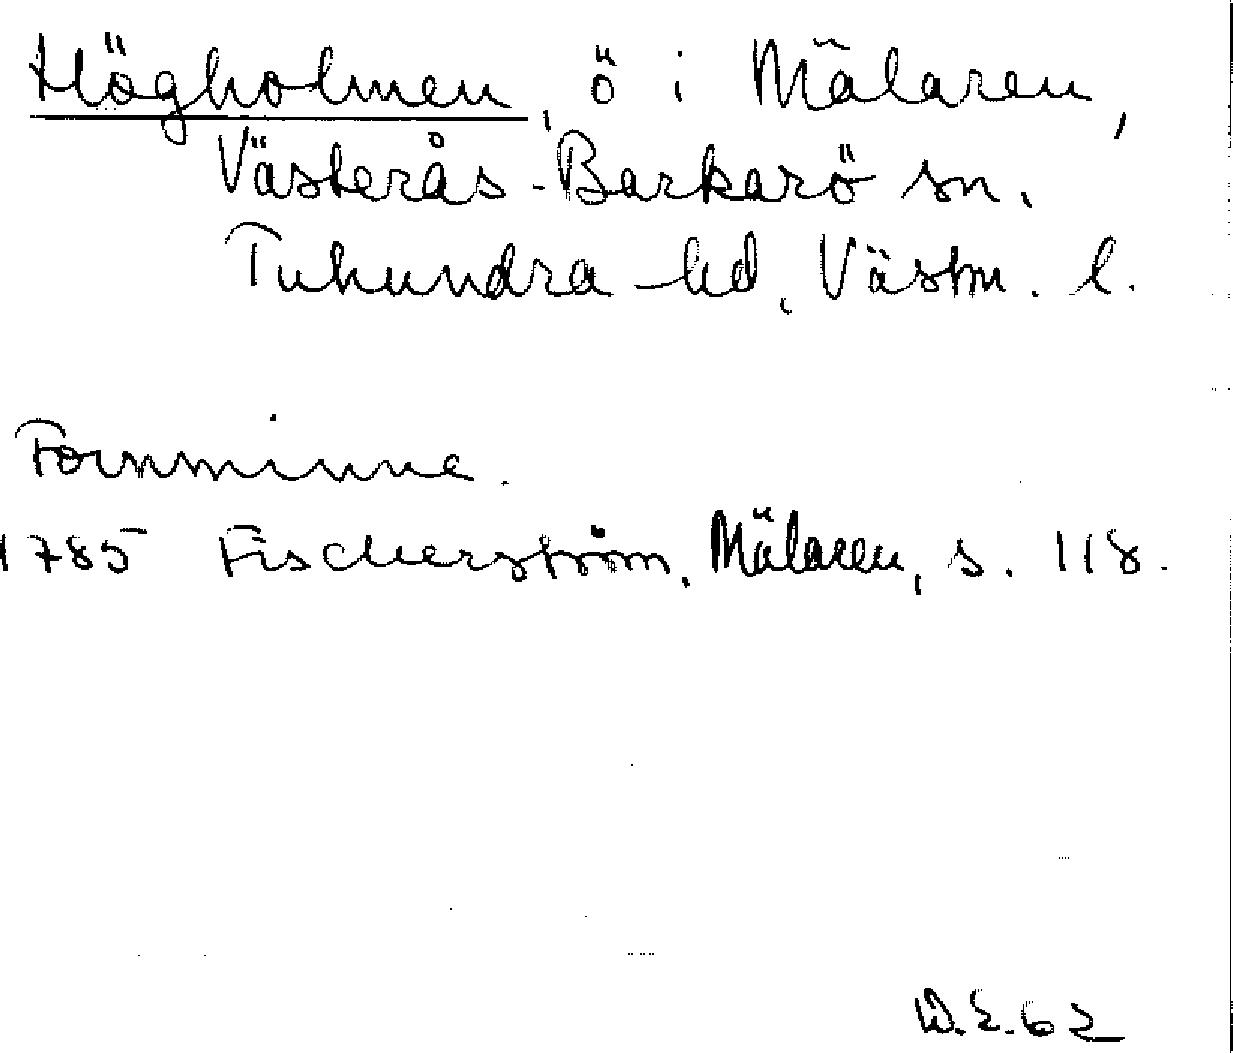 Högholmen, ö i Mälaren,
Västerås-Barkarö sn.
Tuhundra hd, Västm. l.
Fornminne.
1785 Fischerström, Mälaren, s. 118.
W.E.62